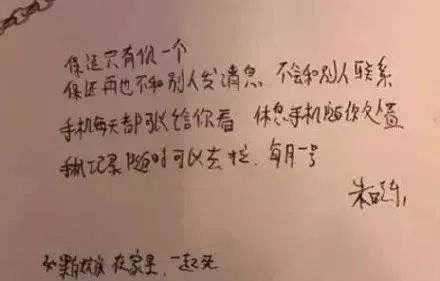 保证只有你一个
保证再也不和别人发消息 不会和别人联系
手机每天都可以给你看 休息手机随你处置
手机记录随时可以去拉，每月一号
朱晓东
如果有放孩在家里，一起死